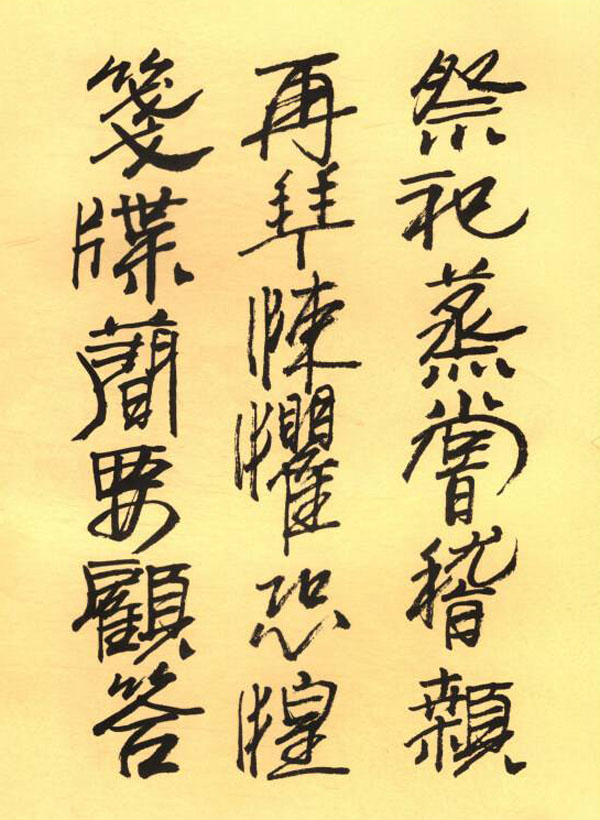 祭祀蒸嘗稽顙
再拜悚懼恐惶
箋牒簡要顧答